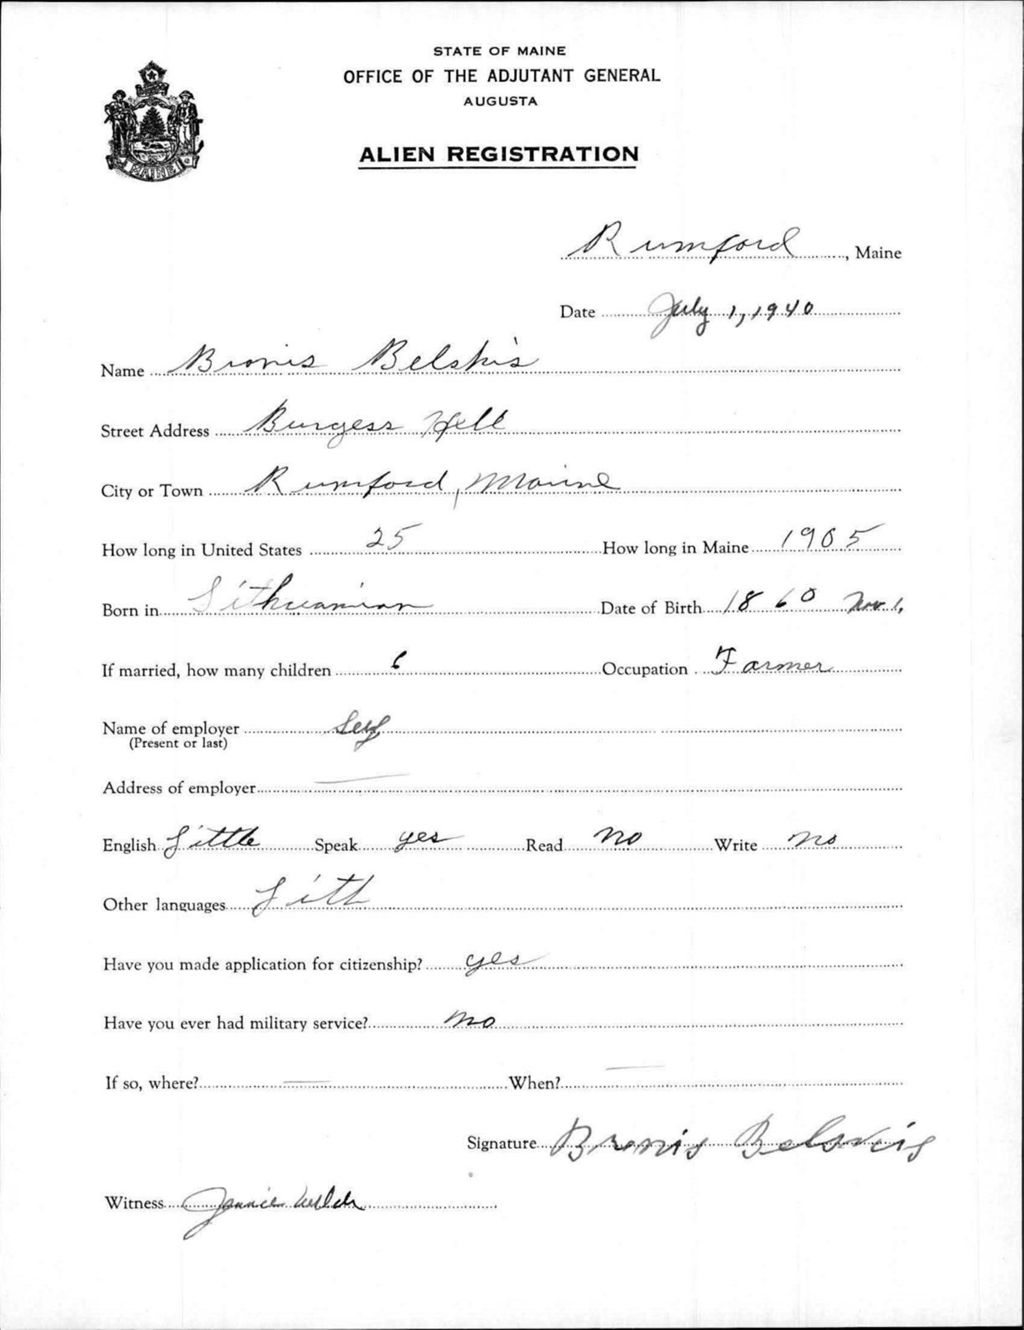 STATE OF MAINE
OFFICE OF THE ADJUTANT GENERAL
AUGUSTA
ALIEN REGISTRATION
MAINE
Rumford, Maine
Date July 1, 1940
Name Bronis Belskis
Street Address Burgess Hell
City or Town Rumford, Maine
How long in United States 25 How long in Maine 1905
Born in Lithuanian Date of Birth 1860 Nov. 1.
If married, how many children 6 Occupation Farmer
Name of employer Self
(Present or last)
Address of employer —
English Little Speak yes Read No Write no
Other languages Lith
Have you made application for citizenship? yes
Have you ever had military service? no
If so, where? — When? —
Signature Bronis Belskis
Witness Jennie Welch